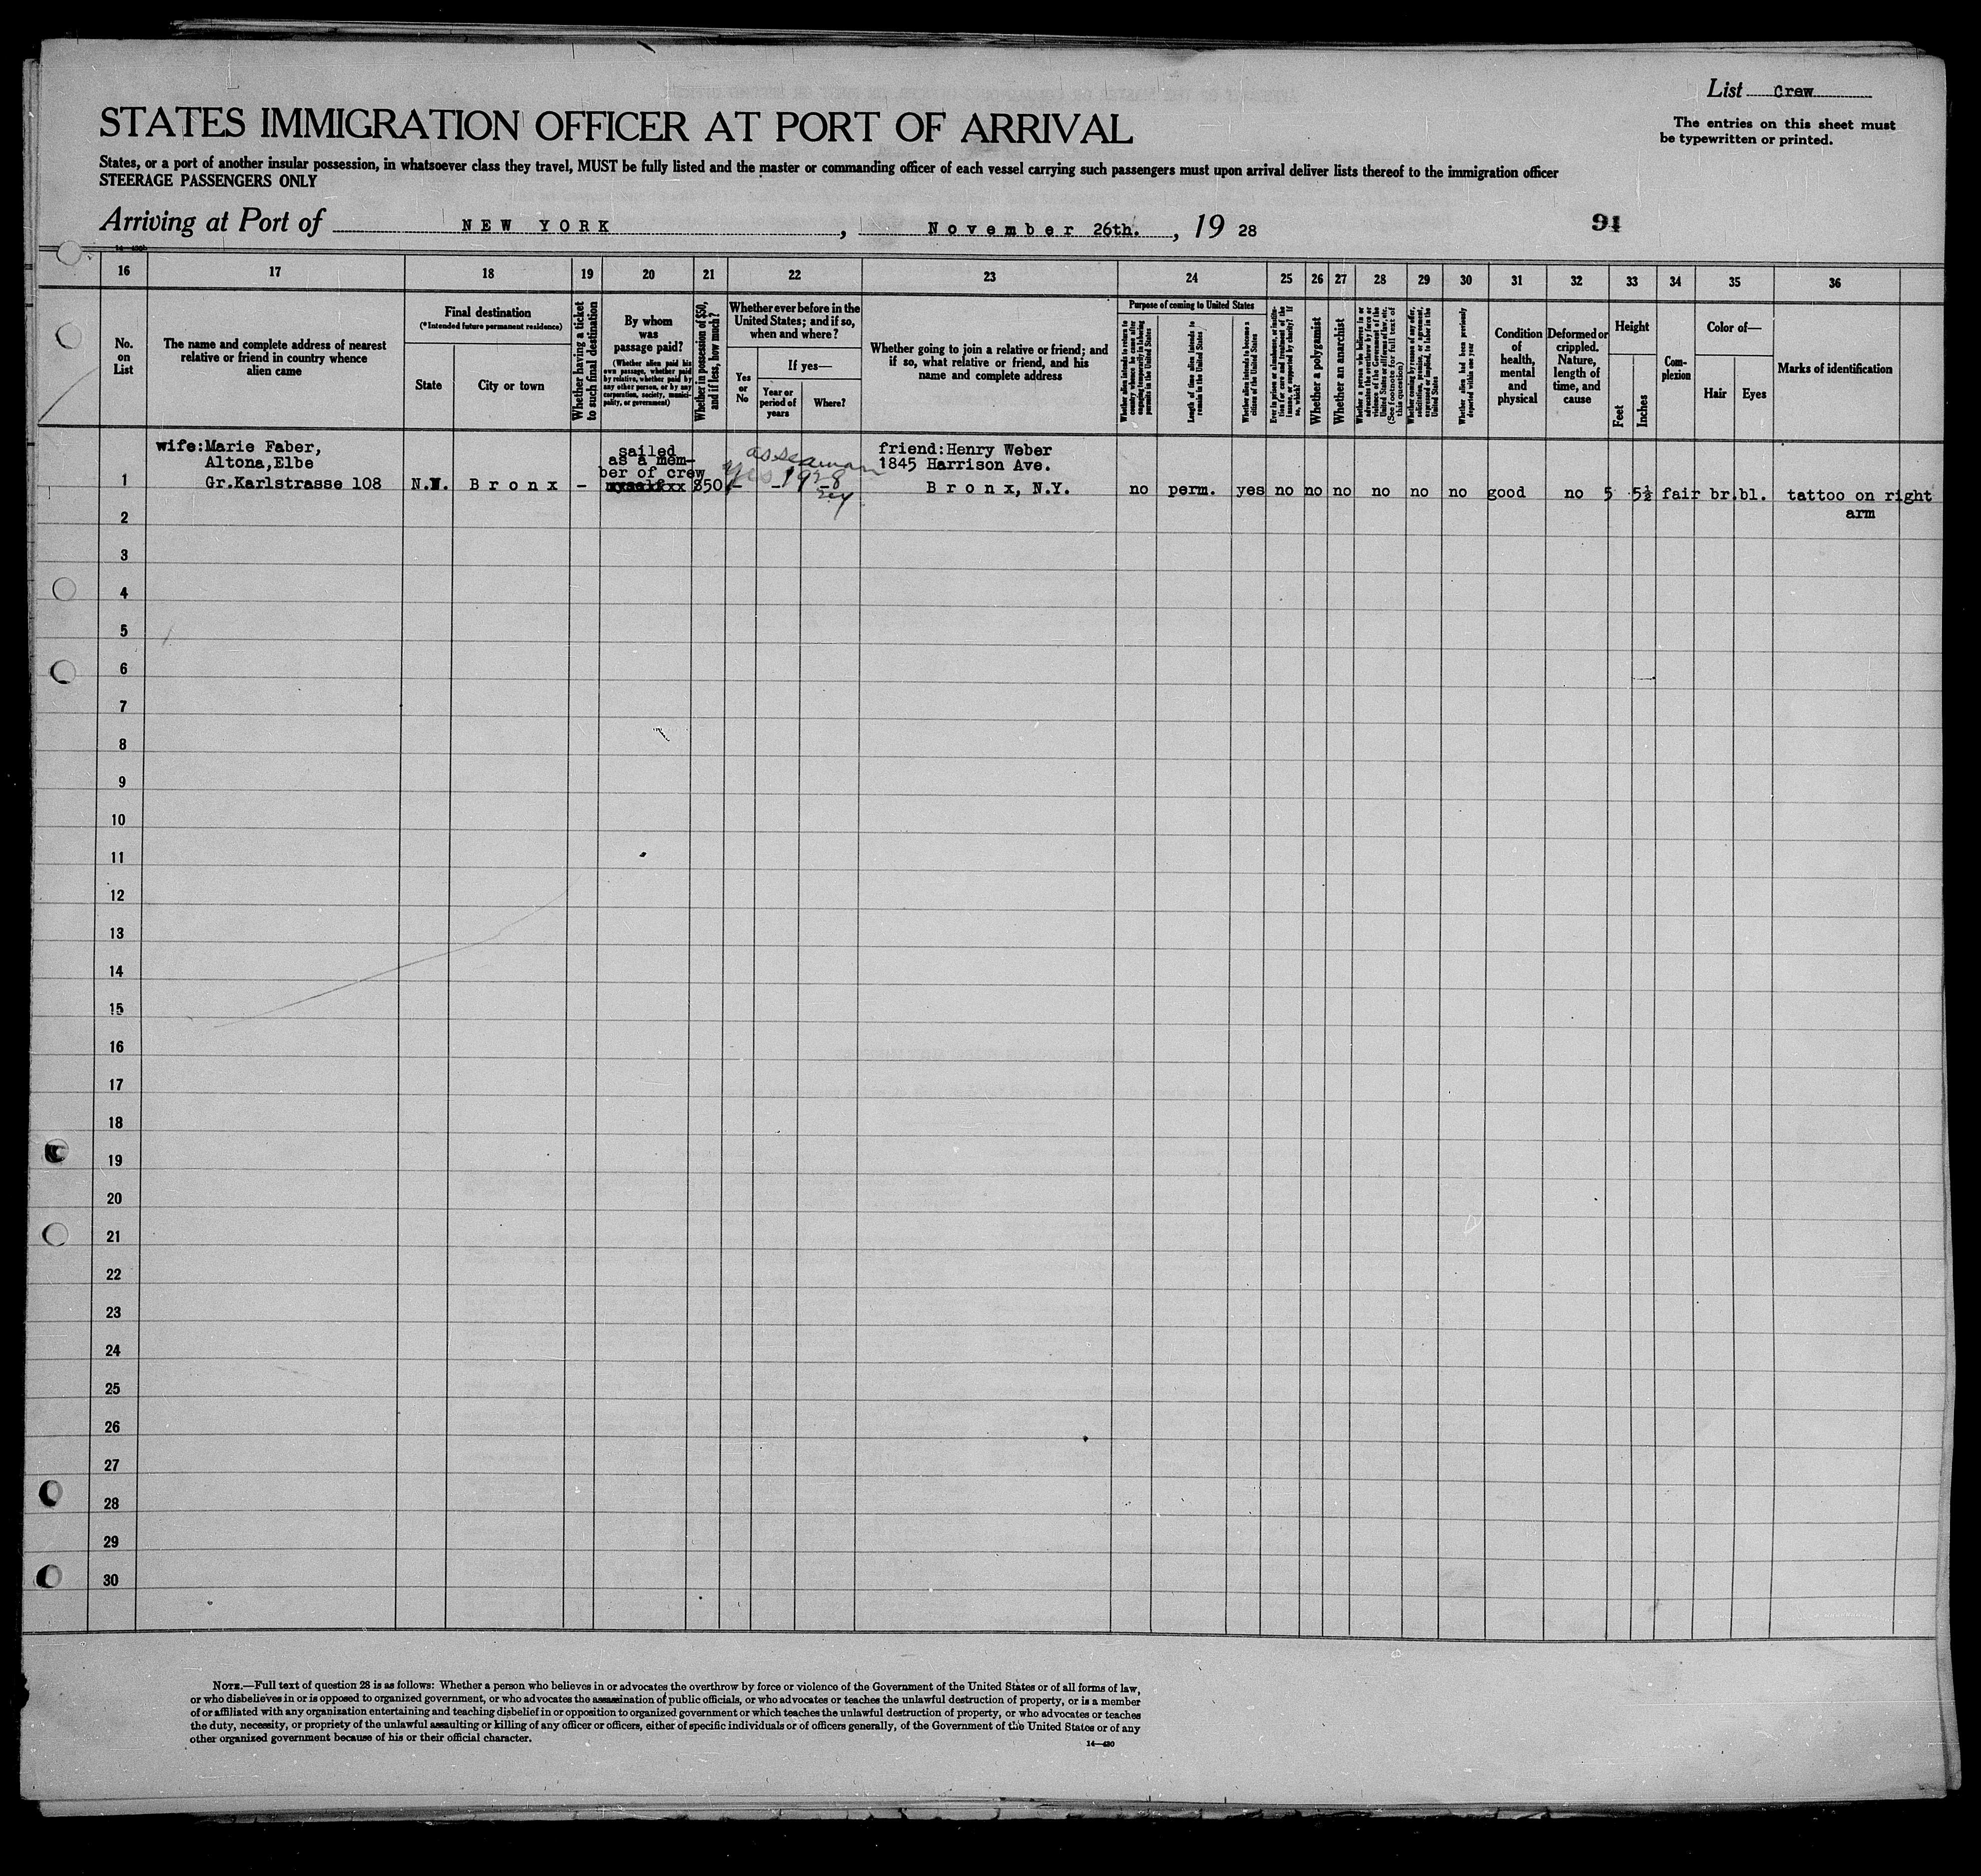 List Crew
The entries on this sheet must
be typewritten or printed.
STATES IMMIGRATION OFFICER AT PORT OF ARRIVAL
States, or a port of another insular possession, in whatsoever class they travel, MUST be fully listed and the master or commanding officer of each vessel carrying such passengers must upon arrival deliver lists thereof to the immigration officer
STEERAGE PASSENGERS ONLY
Arriving at Port of NEW YORK, November 26th., 19 28
91
16 17 18 19 20 21 22 23 24 25 26 27 28 29 30 31 32 33 34 35 36
No.
on
List
The name and complete address of nearest
relative or friend in country whence
alien came
Final destination
(*Intended future permanent residence)
State
City or town
Whether having a ticket
to such final destination
By whom
was
passage paid?
(Whether alien paid his
own passage, whether paid
by relative, whether paid by
any other person, or by any
corporation, society, munici-
pality, or government)
Whether in possession of $50,
and if less, how much?
Whether ever before in the
United States; and if so,
when and where?
Yes
or
No
If yes—
Year or
period of
years
Where?
Whether going to join a relative or friend; and
if so, what relative or friend, and his
name and complete address
Purpose of coming to United States
Whether alien intends to return to
country whence he came after
engaging temporarily in laboring
pursuits in the United States
Length of time alien intends to
remain in the United States
Whether alien intends to become a
citizen of the United States
Ever in prison or almshouse, or institu-
tion for care and treatment of the
insane, or supported by charity? If
so, which?
Whether a polygamist
Whether an anarchist
Whether a person who believes in or
advocates the overthrow by force or
violence of the Government of the
United States or all forms of law, etc.
(See footnote for full text of
this question)
Whether coming by reason of any offer,
solicitation, promise, or agreement,
expressed or implied, to labor in the
United States
Whether alien had been previously
deported within one year
Condition
of
health,
mental
and
physical
Deformed or
crippled.
Nature,
length of
time, and
cause
Height
Feet
Inches
Com-
plexion
Color of—
Hair
Eyes
Marks of identification
wife:Marie Faber,
Altona,Elbe
Gr.Karlstrasse 108
N.Y.
Bronx
-
sailed
as a mem-
ber of crew
myself
$50
as seaman
yes 1928
- - -
friend:Henry Weber
1845 Harrison Ave.
Bronx, N.Y.
no perm. yes no no no no no no good no 5 5½ fair br. bl. tattoo on right
arm
1
2
3
4
5
6
7
8
9
10
11
12
13
14
15
16
17
18
19
20
21
22
23
24
25
26
27
28
29
30
NOTE.—Full text of question 28 is as follows: Whether a person who believes in or advocates the overthrow by force or violence of the Government of the United States or of all forms of law,
or who disbelieves in or is opposed to organized government, or who advocates the assassination of public officials, or who advocates or teaches the unlawful destruction of property, or is a member
of or affiliated with any organization entertaining and teaching disbelief in or opposition to organized government or which teaches the unlawful destruction of property, or who advocates or teaches
the duty, necessity, or propriety of the unlawful assaulting or killing of any officer or officers, either of specific individuals or of officers generally, of the Government of the United States or of any
other organized government because of his or their official character.
14—430